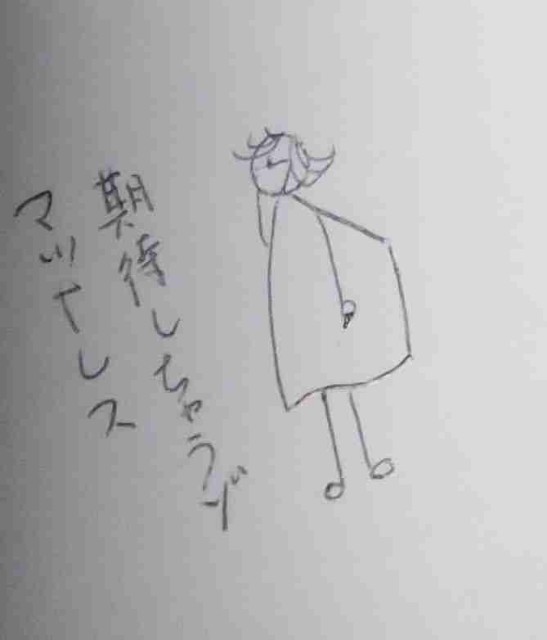 期待しちゃうぞ
マットレス